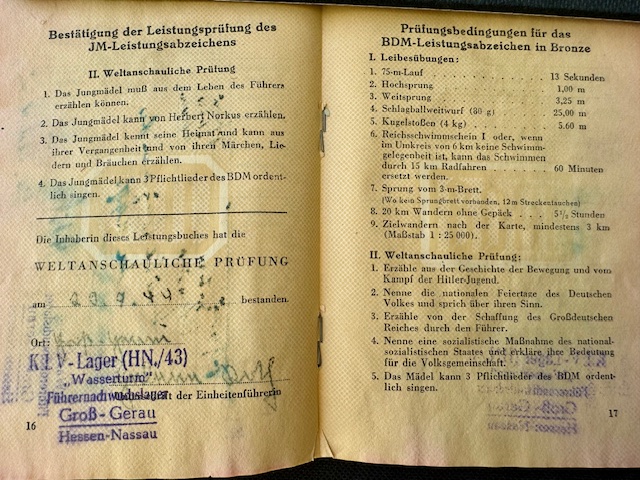 Bestätigung der Leistungsprüfung des
JM-Leistungsabzeichens
II. Weltanschauliche Prüfung
1. Das Jungmädel muß aus dem Leben des Führers
erzählen können.
2. Das Jungmädel kann von Herbert Norkus erzählen.
3. Das Jungmädel kennt seine Heimat und kann aus
ihrer Vergangenheit und von ihren Märchen, Lie-
dern und Bräuchen erzählen.
4. Das Jungmädel kann 3 Pflichtlieder des BDM ordent-
lich singen.
Die Inhaberin dieses Leistungsbuches hat die
WELTANSCHAULICHE PRÜFUNG
am bestanden.
Ort:
KLV-Lager (HN./43)
„Wasserturm"
Führernachwuchslager
der Einheitenführerin
Groß-Gerau
Hessen-Nassau
16
Prüfungsbedingungen für das
BDM-Leistungsabzeichen in Bronze
I. Leibesübungen:
1. 75-m-Lauf . . . . . . . . . . 13 Sekunden
2. Hochsprung . . . . . . . . . . 1,00 m
3. Weitsprung . . . . . . . . . . 3,25 m
4. Schlagballweitwurf (80 g) . . . . 25,00 m
5. Kugelstoßen (4 kg) . . . . . . . 5.60 m
6. Reichsschwimmschein I oder, wenn
im Umkreis von 6 km keine Schwimm-
gelegenheit ist, kann das Schwimmen
durch 15 km Radfahren . . . . . 60 Minuten
ersetzt werden.
7. Sprung vom 3-m-Brett.
(Wo kein Sprungbrett vorhanden, 12 m Streckentauchen)
8. 20 km Wandern ohne Gepäck . . 5½ Stunden
9. Zielwandern nach der Karte, mindestens 3 km
(Maßstab 1 : 25 000).
II. Weltanschauliche Prüfung:
1. Erzähle aus der Geschichte der Bewegung und vom
Kampf der Hitler-Jugend.
2. Nenne die nationalen Feiertage des Deutschen
Volkes und sprich über ihren Sinn.
3. Erzähle von der Schaffung des Großdeutschen
Reiches durch den Führer.
4. Nenne eine sozialistische Maßnahme des national-
sozialistischen Staates und erkläre ihre Bedeutung
für die Volksgemeinschaft.
5. Das Mädel kann 3 Pflichtlieder des BDM ordent-
lich singen.
17